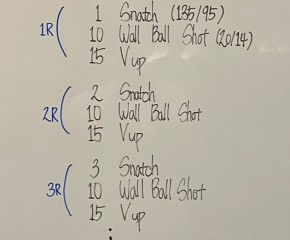 1R( 1 Snatch (135/95)
10 Wall Ball Shot (20/14)
15 V up
2R( 2 Snatch
10 Wall Ball Shot
15 V up
3R( 3 Snatch
10 Wall Ball Shot
15 V up
: